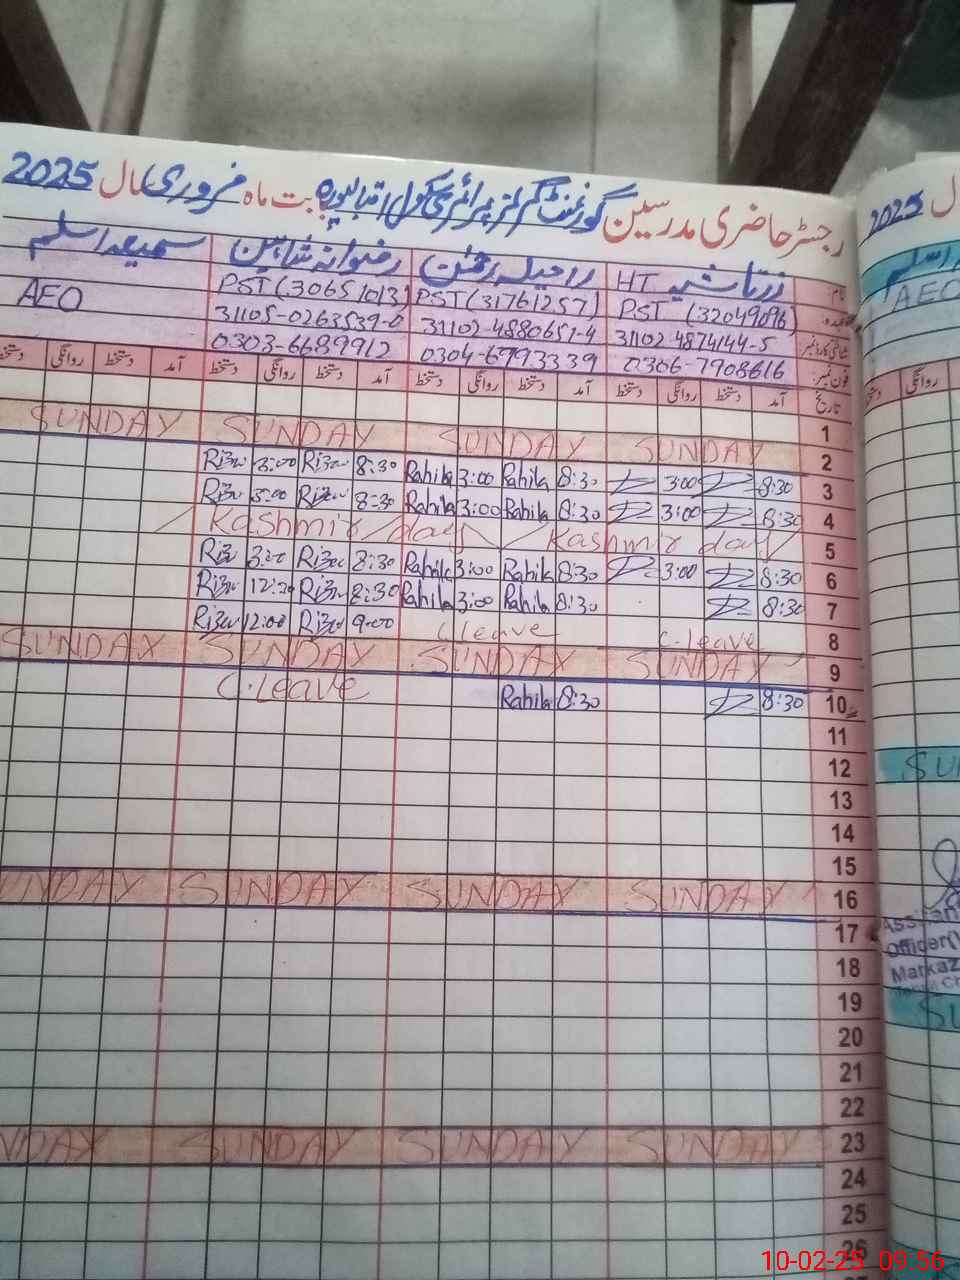 رجسٹر حاضری مدرسین گورنمنٹ گرلز پرائمری سکول اقبالپورہ بابت ماہ فروری سال 2025
نام زرتاشیہ HT راحیلہ رحمٰن رضوانہ شاہین سمیعہ اسلم
عہدہ PST (32049096) PST (31761257) PST (30651013) AEO
شناختی کارڈ نمبر 31102-4874144-5 31102-4880651-4 31105-0263539-0
فون نمبر 0306-7908616 0304-6993339 0303-6689912
تاریخ آمد دستخط روانگی دستخط آمد دستخط روانگی دستخط آمد دستخط روانگی دستخط آمد دستخط روانگی دستخط
1
2 SUNDAY SUNDAY SUNDAY SUNDAY
3 8:30 3:00 8:30 Rahila 3:00 Rahila 8:30 Rizw 3:00 Rizw
4 8:30 3:00 8:30 Rahila 3:00 Rahila 8:30 Rizw 3:00 Rizw
5 Kashmir day Kashmir day
6 8:30 3:00 8:30 Rahila 3:00 Rahila 8:30 Rizw 3:00 Rizw
7 8:30 8:30 Rahila 3:00 Rahila 8:30 Rizw 12:30 Rizw
8 C.leave C leave 9:00 Rizw 12:00 Rizw
9 SUNDAY SUNDAY SUNDAY SUNDAY
10 8:30 8:30 Rahila C.Leave
11
12
13
14
15
16 SUNDAY SUNDAY SUNDAY UNDAY
17
18
19
20
21
22
23 SUNDAY SUNDAY SUNDAY NDAY
24
25
26
2025
AEO
روانگی
SU
Officer
Markaz
SU
10-02-25 09:56